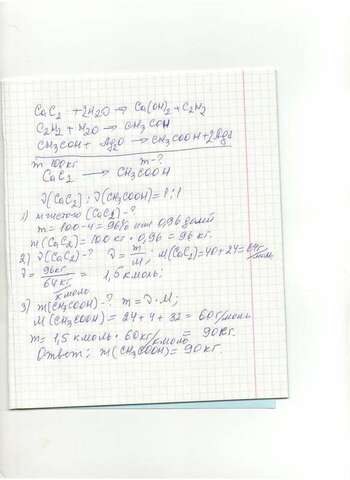 CaC₂ + 2H₂O → Ca(OH)₂ + C₂H₂
C₂H₂ + H₂O → CH₃COH
CH₃COH + Ag₂O → CH₃COOH + 2Ag↓
m 100кг m-?
CaC₂ → CH₃COOH
ν(CaC₂) : ν(CH₃COOH) = 1:1
1) m чистого (CaC₂)-?
m = 100-4 = 96% или 0,96 долей
m(CaC₂) = 100 кг · 0,96 = 96 кг.
2) ν(CaC₂)-? ν = m/M; M(CaC₂) = 40+24 = 64г/моль
ν = 96кг/64 кг/кмоль = 1,5 кмоль;
3) m(CH₃COOH)-? m = ν·M;
M(CH₃COOH) = 24+4+32 = 60г/моль
m = 1,5 кмоль · 60кг/кмоль = 90кг.
Ответ: m(CH₃COOH) = 90кг.